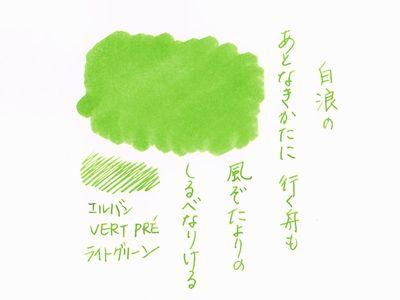 白浪の
あとなきかたに 行く舟も
風ぞたよりの
しるべなりける
エルバン
VERT PRÉ
ライトグリーン